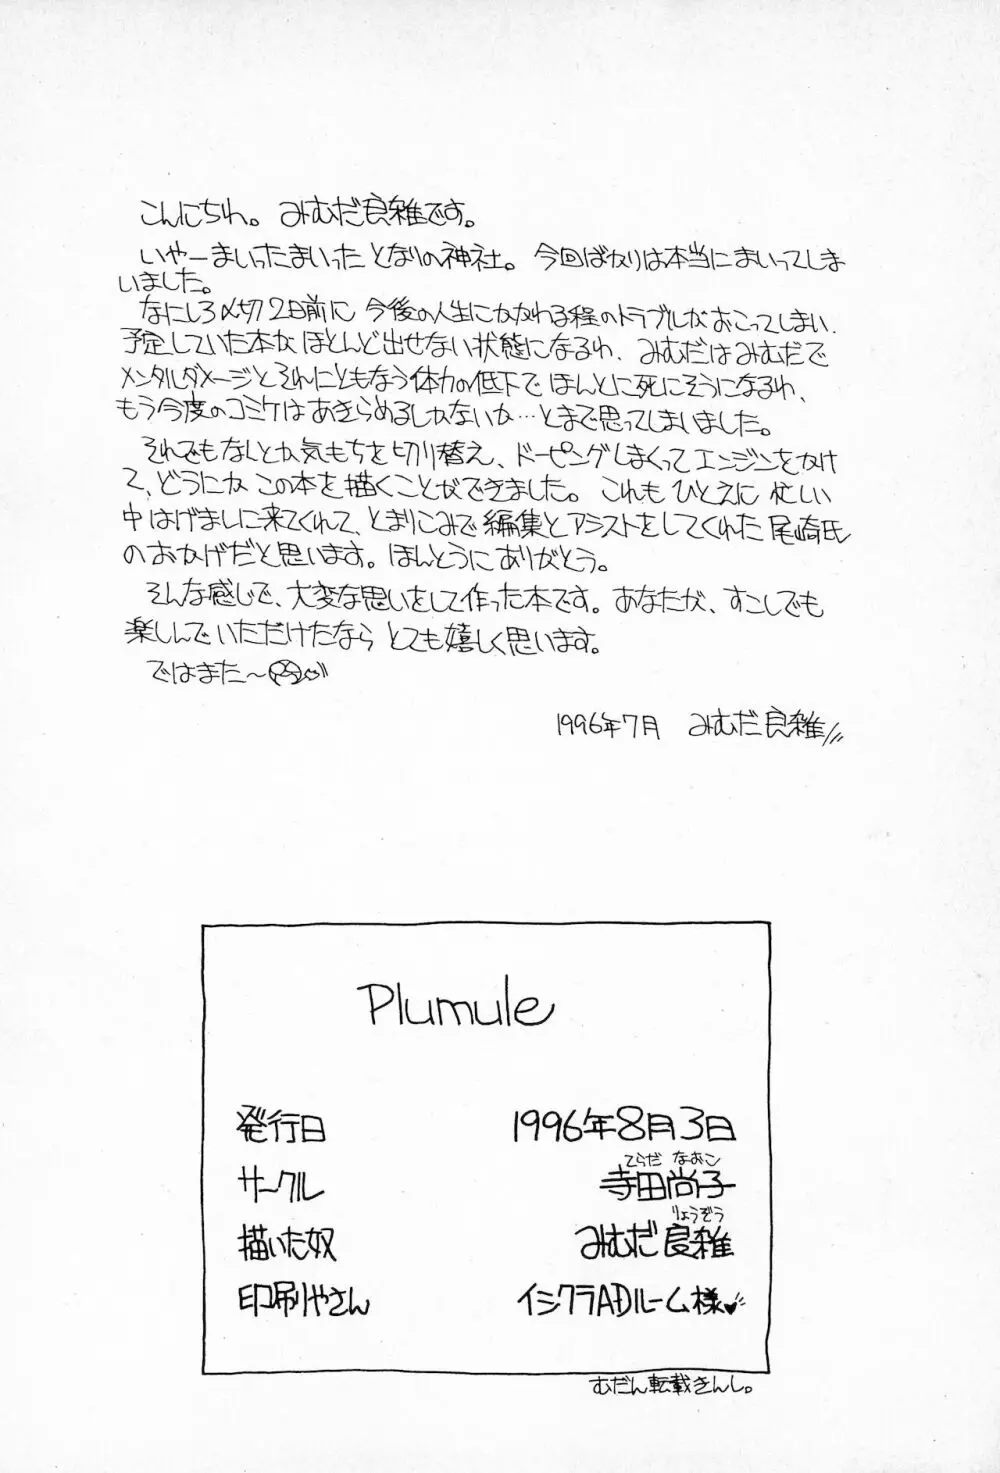 こんにちわ。みむだ良雑です。
いやーまいったまいった となりの神社。今回ばかりは本当にまいってしま
いました。
なにしろ〆切2日前に 今後の人生にかかわる程のトラブルがおこってしまい、
予定していた本が ほとんど出せない状態になるわ、みむだはみむだで
メンタルダメージとそれにともなう体力の低下で ほんとに死にそうになるわ、
もう今度のコミケはあきらめるしかないか…とまで思ってしまいました。
それでもなんとか気もちを切り替え、ドーピングしまくってエンジンをかけ
て、どうにか この本を描くことができました。これも ひとえに 忙しい
中 はげましに来てくれて、とまりこみで編集とアシストをしてくれた 尾崎氏
のおかげだと思います。ほんとうにありがとう。
そんな感じで、大変な思いをして作った本です。あなたが、すこしでも
楽しんでいただけたなら とても嬉しく思います。
ではまた〜
1996年7月 みむだ良雑
Plumule
発行日 1996年8月3日
てらだ なおこ
サークル 寺田尚子
りょうぞう
描いた奴 みむだ良雑
印刷やさん イシクラADルーム様♥
むだん転載きんし。